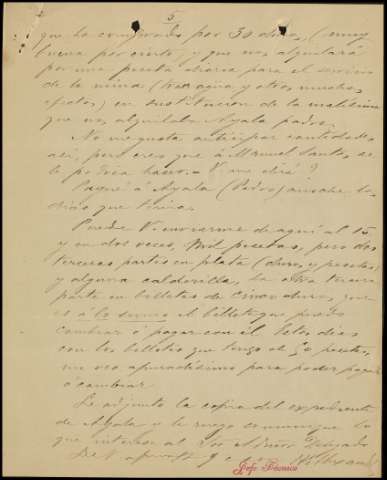 5
que ha comprado por 30 duros, (muy
buena por cierto) y que nos alquilará
por una peseta diaria para el servicio
de la mina (traer agua y otros muchos
efectos) en sustitución de la
que nos alquilaba Ayala padre.
No me gusta anticipar cantidades
así, pero creo que á Manuel Santos, se
le podría hacer. V. me dirá?
Pagué á Ayala (Pedro) anoche lo
que tenía.
Puede V. enviarme de aquí al 15
y en dos veces, mil pesetas, pero dos
terceras partes en plata (duros y pesetas)
y alguna calderilla, la otra tercera
parte en billetes de cinco duros, que
es á lo sumo el billete que puedo
cambiar ó pagar con él. Estos días
con los billetes que tengo de 50 pesetas,
me veo apuradísimo para poder pagar
ó cambiar.
Le adjunto la copia del expediente
de Ayala y le ruego comunique lo
que interese al Sor
De V. afmo
Jefe Técnico